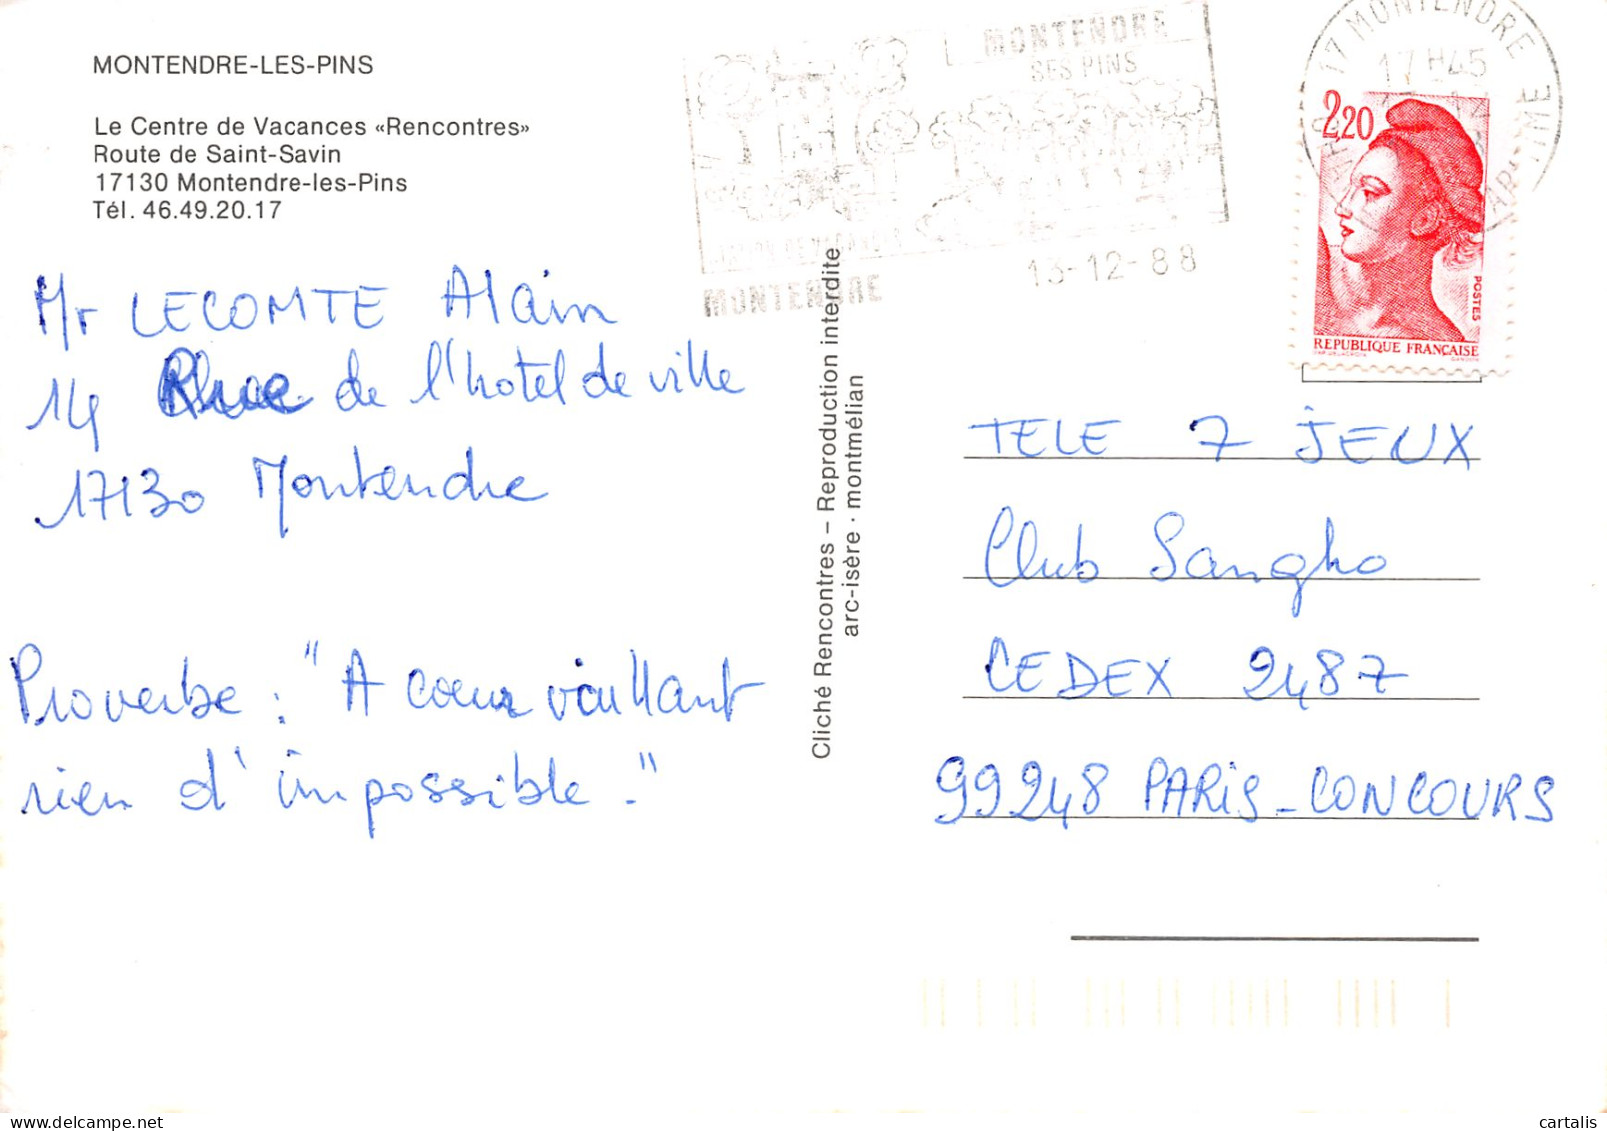 MONTENDRE-LES-PINS
Le Centre de Vacances «Rencontres»
Route de Saint-Savin
17130 Montendre-les-Pins
Tél. 46.49.20.17
Mr LECOMTE Alain
14 Rue de l'hotel de ville
17130 Montendre
Proverbe : "A cœur vaillant
rien d'impossible."
MONTENDRE
SES PINS
MONTENDRE
13-12-88
17 MONTENDRE
17 H45
2,20
POSTES
REPUBLIQUE FRANÇAISE
Cliché Rencontres – Reproduction interdite
arc-isère · montmélian
TELE 7 JEUX
Club Sangho
CEDEX 2487
99248 PARIS-CONCOURS
cartalis